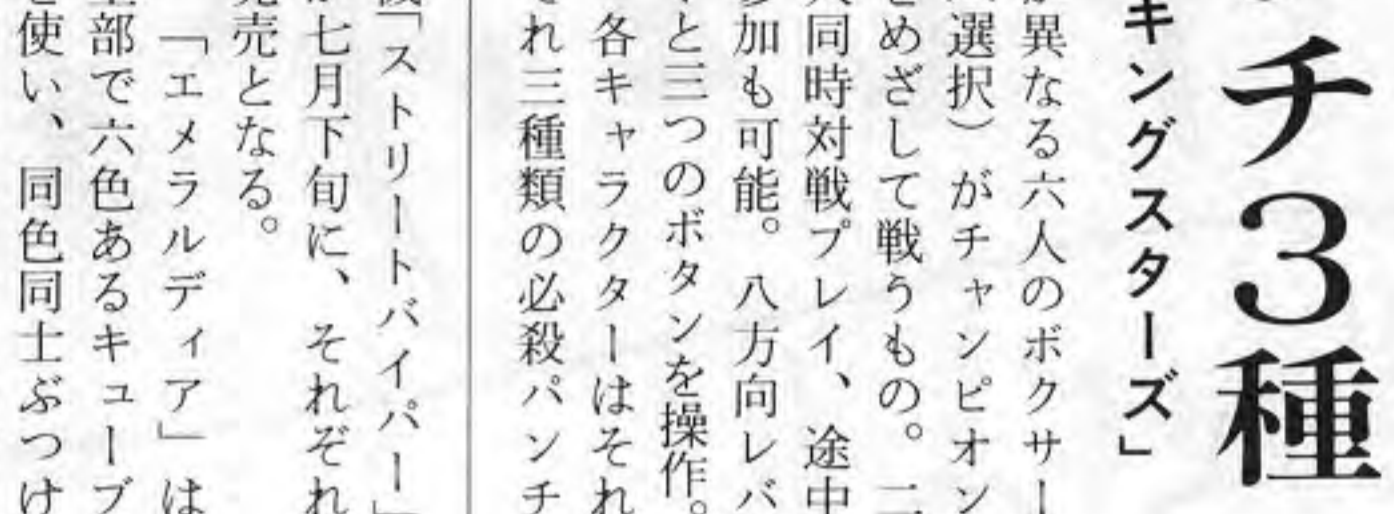 チ3種
キングスターズ」
異なる六人のボクサー
選択）がチャンピオン
めざして戦うもの。二
同時対戦プレイ、途中
加も可能。八方向レバ
と三つのボタンを操作。
各キャラクターはそれ
れ三種類の必殺パンチ
「ストリートバイパー」
七月下旬に、それぞれ
売となる。
「エメラルディア」は
部で六色あるキューブ
使い、同色同士ぶつけ